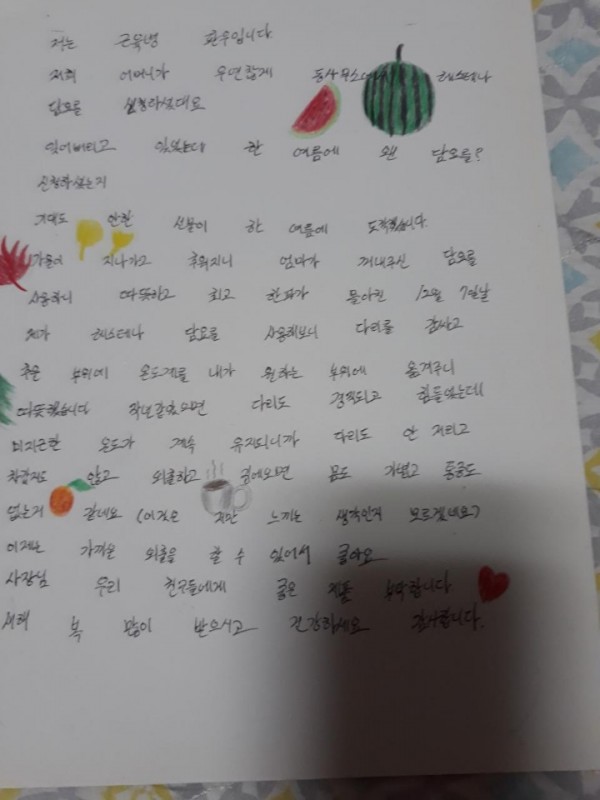 저는 근육병 환우입니다
저희 어머니가 우연찮게 동사무소에서 레스테나
담요를 신청하셨대요
잊어버리고 있었는데 한 여름에 왠 담요를?
신청하셨는지
기대도 안한 선물이 한 여름에 도착했습니다.
가을이 지나가고 추워지니 엄마가 꺼내주신 담요를
사용하니 따뜻하고 최고 한파가 몰아친 12월 7일날
제가 레스테나 담요를 사용해보니 다리를 감싸고
추운 부위에 온도계를 내가 원하는 부위에 옮겨주니
따뜻했습니다 작년같았으면 다리도 경직되고 힘들었는데
미지근한 온도가 계속 유지되니까 다리도 안 저리고
차갑지도 않고 외출하고 집에오면 몸도 가볍고 통증도
없는거 같네요 (이것은 지만 느끼는 생각인지 모르겠네요)
이제는 가까운 외출을 할 수 있어서 좋아요
사장님 우리 친구들에게 좋은 제품 부탁합니다
새해 복 많이 받으시고 건강하세요 감사합니다.